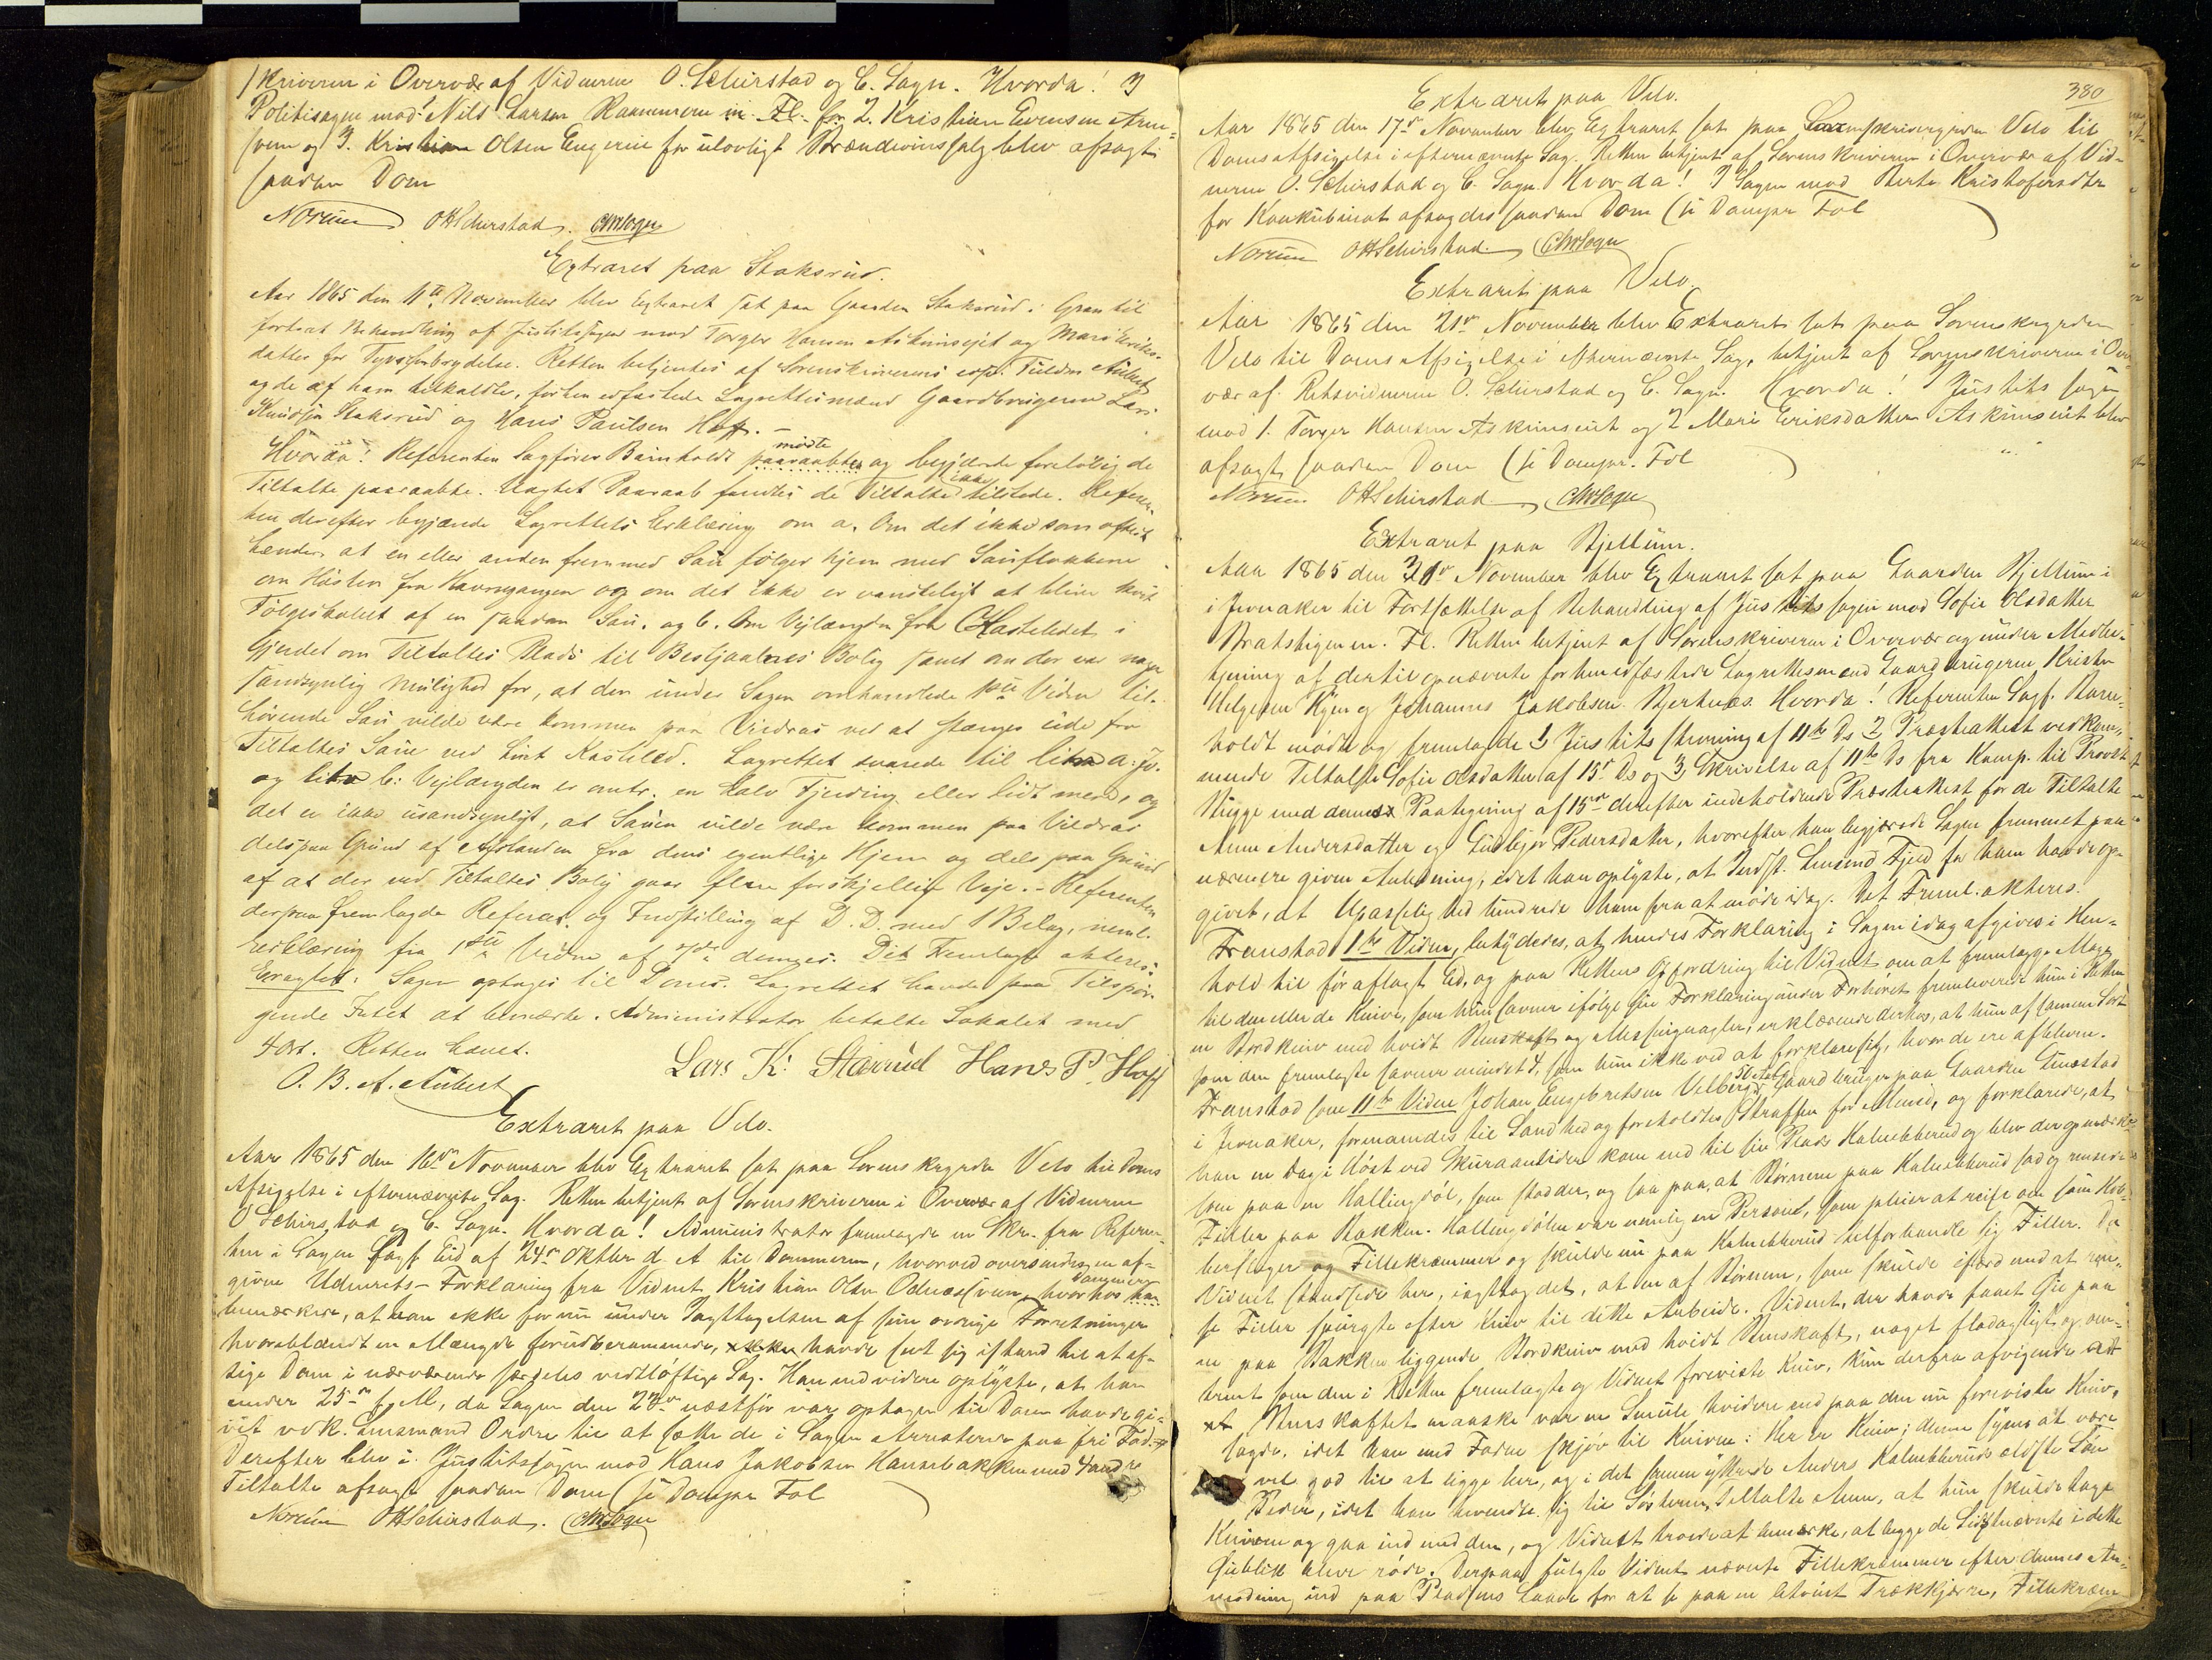 skriveren i Overvær af Vidnerne O. Schirstad og C. Sogn. Hvorda! I
Politisagen mod 1. Nils Larsen Rammeren m. Fl. for 2. Kristian Evensen
sven og 3. Kristian Olsen Engerne for ulovligt Brændevinssalg blev afsagt
saadan Dom
Norum OHSchirstad. CMSogn
Extraret paa Staksrud.
Aar 1865 den 11te November blev Extraret sat paa Gaarden Staksrud i Gran til
fortsat Behandling af Justitssagen mod Torger Hansen Askimsejet og Mari Eriks-
datter for Tyvsforbrydelse. Retten betjentes af Sorenskriverens Fuldm. Aubert
og de af ham tilkaldte, forhen edfæstede Lagrettesmænd Gaardbrugerne Lars
Knudsen Staksrud og Hans Paulsen Hoff. –
Hvorda! Referenten Sagfører Barnholdt mødte og begjærede foreløbig de
Tiltalte paaraabte. Uagtet Paaraab fandtes de Tiltalte ikke tilstede. Referen-
ten derefter begjærede Lagrettets Erklæring om a. Om det ikke som oftest
hænder at en eller anden fremmed Sau følger hjem med Sauflokkene
om Høsten fra Havnegangen og om det ikke er vanskeligt at blive kvit
Følgeskabet af en saadan Sau. og b. Om Vejlængden fra Kasteledet i
Gjerdet om Tiltaltes Plads til Bestjaalnes Bolig samt om der var nogen
sandsynlig Mulighed for, at den under Sagen omhandlede 1ste Vidne til-
hørende Sau vilde være kommen paa Vildras ved at stænges ude fra
Tiltaltes Saue ved sidst Kasteled. Lagrettet svarede til litra a: jo.
og litra b: Vejlængden er omtr. en halv Fjerding eller lidt mere, og
det er ikke usandsynligt, at Sauen vilde være kommen paa Vildras
dels paa Grund af Afstanden fra dens egentlige Hjem og dels paa Grund
af at der ved Tiltaltes Bolig gaar flere forskjellige Veje. – Referenten
derpaa fremlagde Referat og Indstilling af D. D. med 1 Bilag, neml.
erklæring fra 1ste Vidne af 7de dennes. Det Fremlagte akteres.
Eragtet: Sagen optages til Doms. Lagrettet havde paa Tilspør-
gende Intet at bemærke. Administrator betalte Lokalet med
4 Ort. Retten hævet.
O. B. A. Aubert Lars K. Staxrud Hans P. Hoff
Extraret paa Velo.
Aar 1865 den 16de November blev Extraret sat paa Sorenskrgrden Velo til Doms
Afsigelse i efternævnte Sag. Retten betjent af Sorenskriveren i Overvær af Vidnerne
O Schirstad og C. Sogn. Hvorda! Administrator fremlagde en Skr. fra Referen-
ten i Sagen Sagf. Eid af 24de Oktbr. d. A. til Dommeren, hvorved oversendes en af-
given Udenrets-Forklaring fra Vidnet Kristian Olsen Odnæssven, hvorhos Dommeren
bemærkede, at han ikke før nu under Iagttagelsen af sine øvrige Forretninger
hvoriblandt en Mængde forudberammede, havde seet sig istand til at af-
sige Dom i nærværende særdeles vidtløftige Sag. Han endvidere oplyste, at han
under 25de f. M., da Sagen den 24de næstfør var optagen til Dom havde gi-
vet vedk. Lensmand Ordre til at sætte de i Sagen Arresterede paa fri Fod.
Derefter blev i Justitssagen mod Hans Jakobsen Hansebakken med 4 andre
Tiltalte afsagt saadan Dom (se Dompr. Fol
Norum OHSchirstad. CMSogn
380
Extraret paa Velo.
Aar 1865 den 17de November blev Extraret sat paa Sorenskrivergrden Velo til
Doms Afsigelse i efternævnte Sag. Retten betjent af Sorenskriveren i Overvær af Vid-
nerne O. Schirstad og C. Sogn. Hvorda! I Sagen mod Berte Kristofersdtr
for Konkubinat afsagdes saadan Dom (se Dompr Fol
Norum OHSchirstad. CMSogn
Extraret paa Velo.
Aar 1865 den 21de November blev Extraret sat paa Sorenskrgrden
Velo til Doms Afsigelse i efternævnte Sag, betjent af Sorenskriveren i Over-
vær af Retsvidnerne O. Schirstad og C. Sogn. Hvorda! Justitssagen
mod 1. Torger Hansen Askimseiet og 2 Mari Eriksdatter Askimseiet blev
afsagt saadan Dom (se Dompr. Fol
Norum OHSchirstad CMSogn
Extraret paa Bjellum.
Aar 1865 den 21de November blev Extraret sat paa Gaarden Bjellum i
i Jevnaker til Fortsættelse af Behandling af Justitssagen mod Sofie Olsdatter
Bratstigen m. Fl. Retten betjent af Sorenskriveren i Overvær og under Medbe-
tjening af dertil opnævnte forhen edfæstede Lagrettesmænd Gaardbrugerne Kristen
Helgesen Kjos og Johannes Jakobsen Bjerknæs. Hvorda! Referenten Sagf. Barn-
holdt mødte og fremlagde 1 Justits stevning af 11te Ds 2 Præsteattest vedkom-
mende Tiltalte Sofie Olsdatter af 15de Ds og 3 Skrivelse af 11te Ds fra Komp. til Provst
Bugge med dennes Paategning af 15de derefter indeholdende Præsteattest for de Tiltalte
Anne Andersdatter og Gudbjør Pedersdatter, hvorefter han begjærede Sagen fremmet paa
nærmere given Anledning, idet han oplyste, at Indst. Lensmand Fjeld for ham havde op-
givet, at Upasselighed hindrede ham fra at møde idag. Det Freml. akteres.
Franstad 1te Vidne, betydedes, at hendes Forklaring i Sagen idag afgives i Hen-
hold til før aflagt Ed, og paa Rettens Opfordring til Vidnet om at fremlægge Mage
til den eller de Knive, som hun savner ifølge sin Forklaring under Forhøret fremleverede hun i Retten
en Bordkniv med hvidt Benskaft og Messingnagler, erklærende derhos, at hun af samme Sort
som den fremlagte savner mindst 4, som hun ikke ved at forklare sig, hvor de ere afblevne.
Franstad som 11te Vidne Johan Engebretsen Velberg, Gaardbruger paa Gaarden Gunstad
i Jevnaker, formanedes til Sandhed og foreholdtes Straffen for Mened, og forklarede, at
han en Dag i Høst ved Skuraantiden kom ned til sin Plads Kalvebberud og blev der opmærk-
som paa en Hallingdøl, som stod der, og saa paa, at Børnene paa Kalvebberud sad og rensede
Filler paa Bakken. Hallingdølen var nemlig en Person, som pleier at reise om som Hob-
berslager og Fillekræmmer og skulde nu paa Kalvebberud tilforhandle sig Filler. Da
Vidnet standsede her, iagttog det, at en af Børnene, som skulde ifærd med at ren-
se Filler spurgte efter Kniv til dette Arbeide. Vidnet, der havde faaet Øie paa
en paa Bakken liggende Bordkniv med hvidt Benskaft, noget fladagtigt og om-
trent som den i Retten fremlagte og Vidnet foreviste Kniv, kun derfra afvigende
at Benskaftet maaske var en Smule hvidere end paa den nu foreviste Kniv,
sagde, idet han med Foden skjøv til Kniven: Her er Kniv; denne synes at være
vel god til at ligge her, og i det samme yttrede Anders Kalvebberuds ældste Søn
Peder, idet han henvendte sig til Søsteren, Tiltalte Anne, at hun skulde tage
Kniven og gaa ind med den, og Vidnet troede at bemærke, at begge de Sidstnævnte i dette
Øieblik bleve røde. Derpaa fulgte Vidnet nævnte Fillekræmmer efter dennes An-
modning ind paa Pladsens Laave for at se paa en Trækkjærre, Fillekræm-